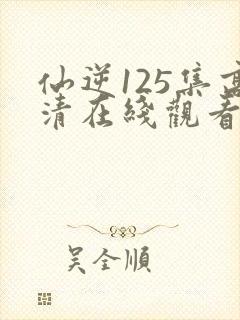 仙逆125集高
清在綫觀看
吴全順